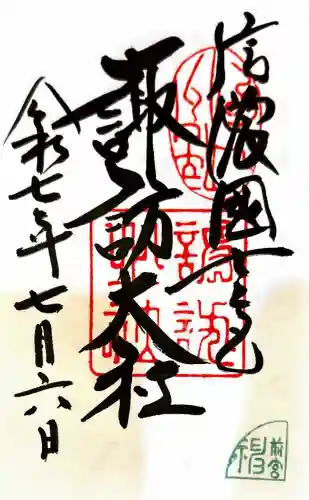 信濃國一之宮
諏訪大社
令和七年七月六日
前宮